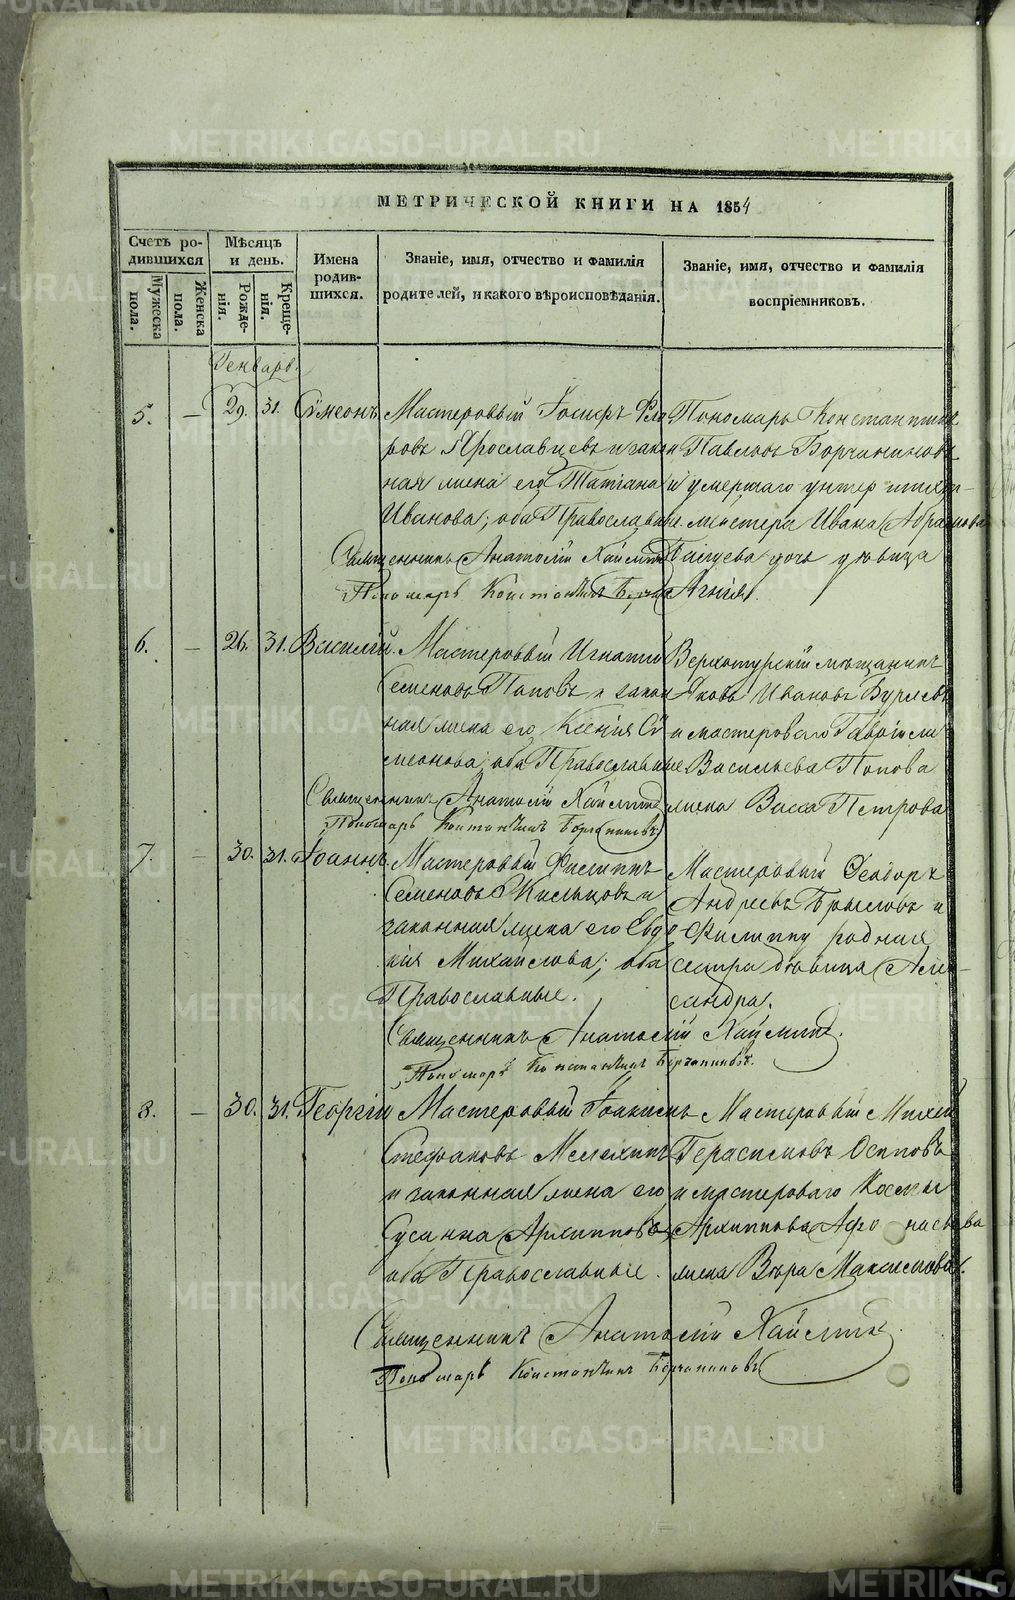 МЕТРИЧЕСКОЙ КНИГИ НА 1854
Счетъ родившихся
Мужеска пола.
Женска пола.
Мѣсяцъ и день.
Рожденія.
Крещенія.
Имена родившихся.
Званіе, имя, отчество и фамилія родителей, и какого вѣроисповѣданія.
Званіе, имя, отчество и фамилія воспріемниковъ.
Генварь.
5. — 29. 31. Сѵмеонъ
Мастеровый Іосифъ
ровъ Ярославцевъ и закон
ная жена его Татіана
Иванова; оба Православные.
Священникъ Анатолій
Пономарь Константинъ
Пономарь Константинъ
Павловъ Борчаниновъ
и умершаго унтер шихт-
мейстера Ивана Абрамова
дочь дѣвица
Агнія.
6. — 26. 31. Василій.
Мастеровый Игнатій
Семеновъ Поповъ и закон
ная жена его Ксенія Сѵ
меонова; оба Православные
Священникъ Анатолій
Пономарь Константинъ Борчаниновъ
Верхотурскій мѣщанинъ
Яковъ Ивановъ
и мастероваго Гавріила
Васильева Попова
жена Васса Петрова
7. — 30. 31. Іоаннъ.
Мастеровый Филиппъ
Семеновъ и
законная жена его Евдо
кія Михайлова; оба
Православные.
Священникъ Анатолій
Пономарь Константинъ Борчаниновъ.
Мастеровый Ѳеодоръ
Андреевъ и
Филиппу родная
сестра дѣвица Алек-
сандра.
8. — 30. 31. Георгій
Мастеровый Іоакимъ
Стефановъ Мелехинъ
и законная жена его
Сусанна Архиппова
оба Православные.
Священникъ Анатолій
Пономарь Константинъ Борчаниновъ
Мастеровый Михей
Герасимовъ Осиповъ
и мастероваго Космы
Архиппова Афонасьева
жена Вѣра Максимова.
METRIKI.GASO-URAL.RU